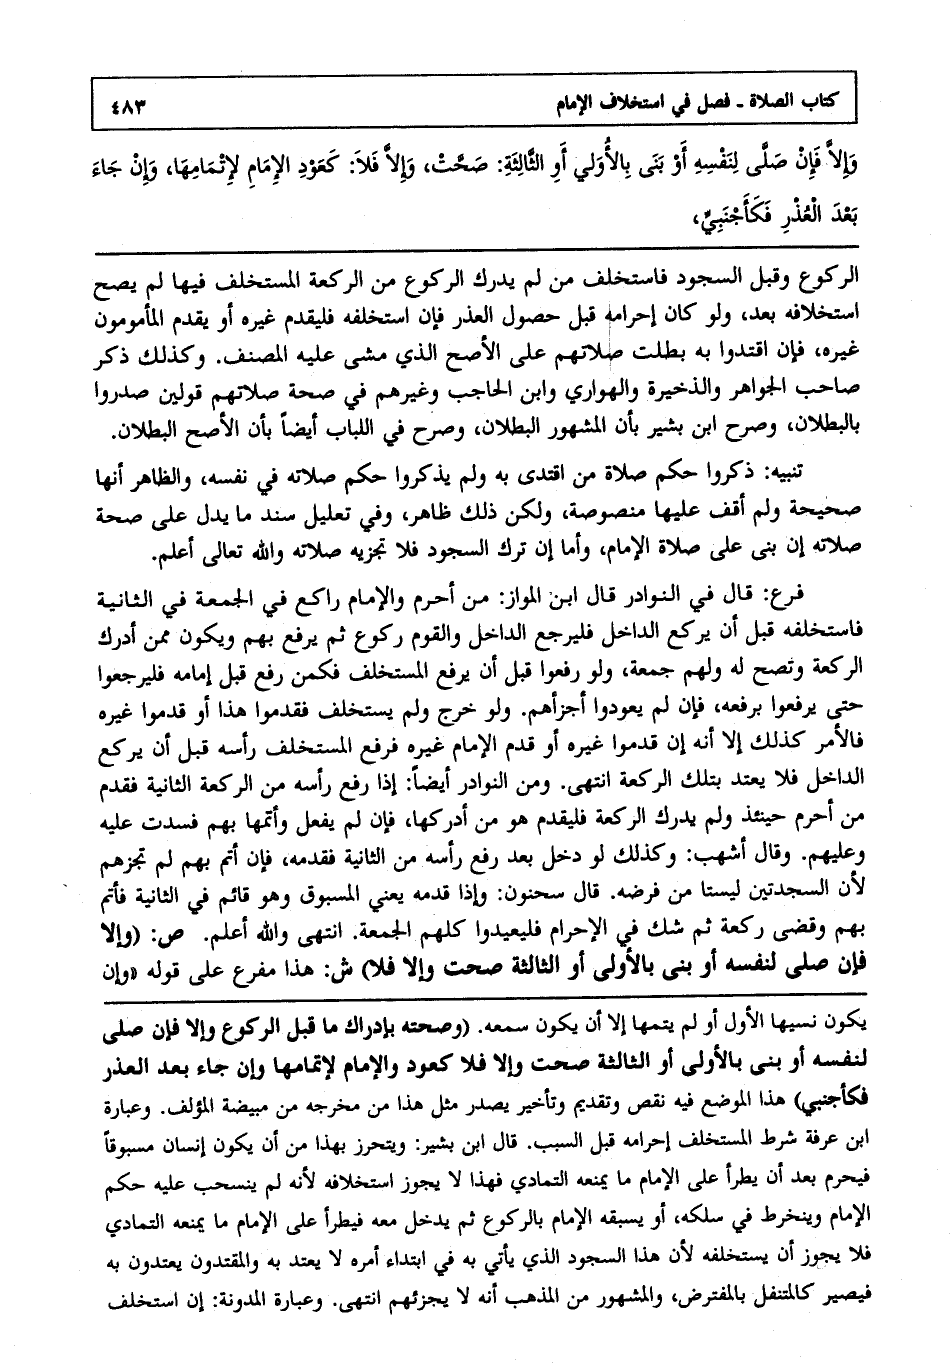 كتاب الصلاة ـ فصل في استخلاف الإمام ٤٨٣
وَإِلاَّ فَإِنْ صَلَّى لِنَفْسِهِ أَوْ بَنَى بِالأُولَي أَوِ الثَّالِثَةِ: صَحَّتْ، وَإِلاَّ فَلاَ: كَعَوْدِ الإِمَامِ لإِتْمَامِهَا، وَإِنْ جَاءَ
بَعْدَ الْعُذْرِ فَكَأَجْنَبِيٍّ،
الركوع وقبل السجود فاستخلف من لم يدرك الركوع من الركعة المستخلف فيها لم يصح
استخلافه بعد، ولو كان إحرامه قبل حصول العذر فإن استخلفه فليقدم غيره أو يقدم المأمومون
غيره، فإن اقتدوا به بطلت صلاتهم على الأصح الذي مشى عليه المصنف. وكذلك ذكر
صاحب الجواهر والذخيرة والهواري وابن الحاجب وغيرهم في صحة صلاتهم قولين صدروا
بالبطلان، وصرح ابن بشير بأن المشهور البطلان، وصرح في اللباب أيضاً بأن الأصح البطلان.
تنبيه: ذكروا حكم صلاة من اقتدى به ولم يذكروا حكم صلاته في نفسه، والظاهر أنها
صحيحة ولم أقف عليها منصوصة، ولكن ذلك ظاهر، وفي تعليل سند ما يدل على صحة
صلاته إن بنى على صلاة الإمام، وأما إن ترك السجود فلا تجزيه صلاته والله تعالى أعلم.
فرع: قال في النوادر قال ابن المواز: من أحرم والإمام راكع في الجمعة في الثانية
فاستخلفه قبل أن يركع الداخل فليرجع الداخل والقوم ركوع ثم يرفع بهم ويكون ممن أدرك
الركعة وتصح له ولهم جمعة، ولو رفعوا قبل أن يرفع المستخلف فكمن رفع قبل إمامه فليرجعوا
حتى يرفعوا برفعه، فإن لم يعودوا أجزأهم. ولو خرج ولم يستخلف فقدموا هذا أو قدموا غيره
فالأمر كذلك إلا أنه إن قدموا غيره أو قدم الإمام غيره فرفع المستخلف رأسه قبل أن يركع
الداخل فلا يعتد بتلك الركعة انتهى. ومن النوادر أيضاً: إذا رفع رأسه من الركعة الثانية فقدم
من أحرم حينئذ ولم يدرك الركعة فليقدم هو من أدركها، فإن لم يفعل وأتمها بهم فسدت عليه
وعليهم. وقال أشهب: وكذلك لو دخل بعد رفع رأسه من الثانية فقدمه، فإن أتم بهم لم تجزهم
لأن السجدتين ليستا من فرضه. قال سحنون: وإذا قدمه يعني المسبوق وهو قائم في الثانية فأتم
بهم وقضى ركعة ثم شك في الإحرام فليعيدوا كلهم الجمعة. انتهى والله أعلم. ص: (وإلا
فإن صلى لنفسه أو بنى بالأولى أو الثالثة صحت وإلا فلا) ش: هذا مفرع على قوله «وإن
يكون نسيها الأول أو لم يتمها إلا أن يكون سمعه. (وصحته بإدراك ما قبل الركوع وإلا فإن صلى
لنفسه أو بنى بالأولى أو الثالثة صحت وإلا فلا كعود والإمام لإتمامها وإن جاء بعد العذر
فكأجنبي) هذا الموضع فيه نقص وتقديم وتأخير يصدر مثل هذا من مخرجه من مبيضة المؤلف. وعبارة
ابن عرفة شرط المستخلف إحرامه قبل السبب. قال ابن بشير: ويتحرز بهذا من أن يكون إنسان مسبوقاً
فيحرم بعد أن يطرأ على الإمام ما يمنعه التمادي فهذا لا يجوز استخلافه لأنه لم ينسحب عليه حكم
الإمام وينخرط في سلكه، أو يسبقه الإمام بالركوع ثم يدخل معه فيطرأ على الإمام ما يمنعه التمادي
فلا يجوز أن يستخلفه لأن هذا السجود الذي يأتي به في ابتداء أمره لا يعتد به والمقتدون يعتدون به
فيصير كالمتنفل بالمفترض، والمشهور من المذهب أنه لا يجزئهم انتهى. وعبارة المدونة: إن استخلف